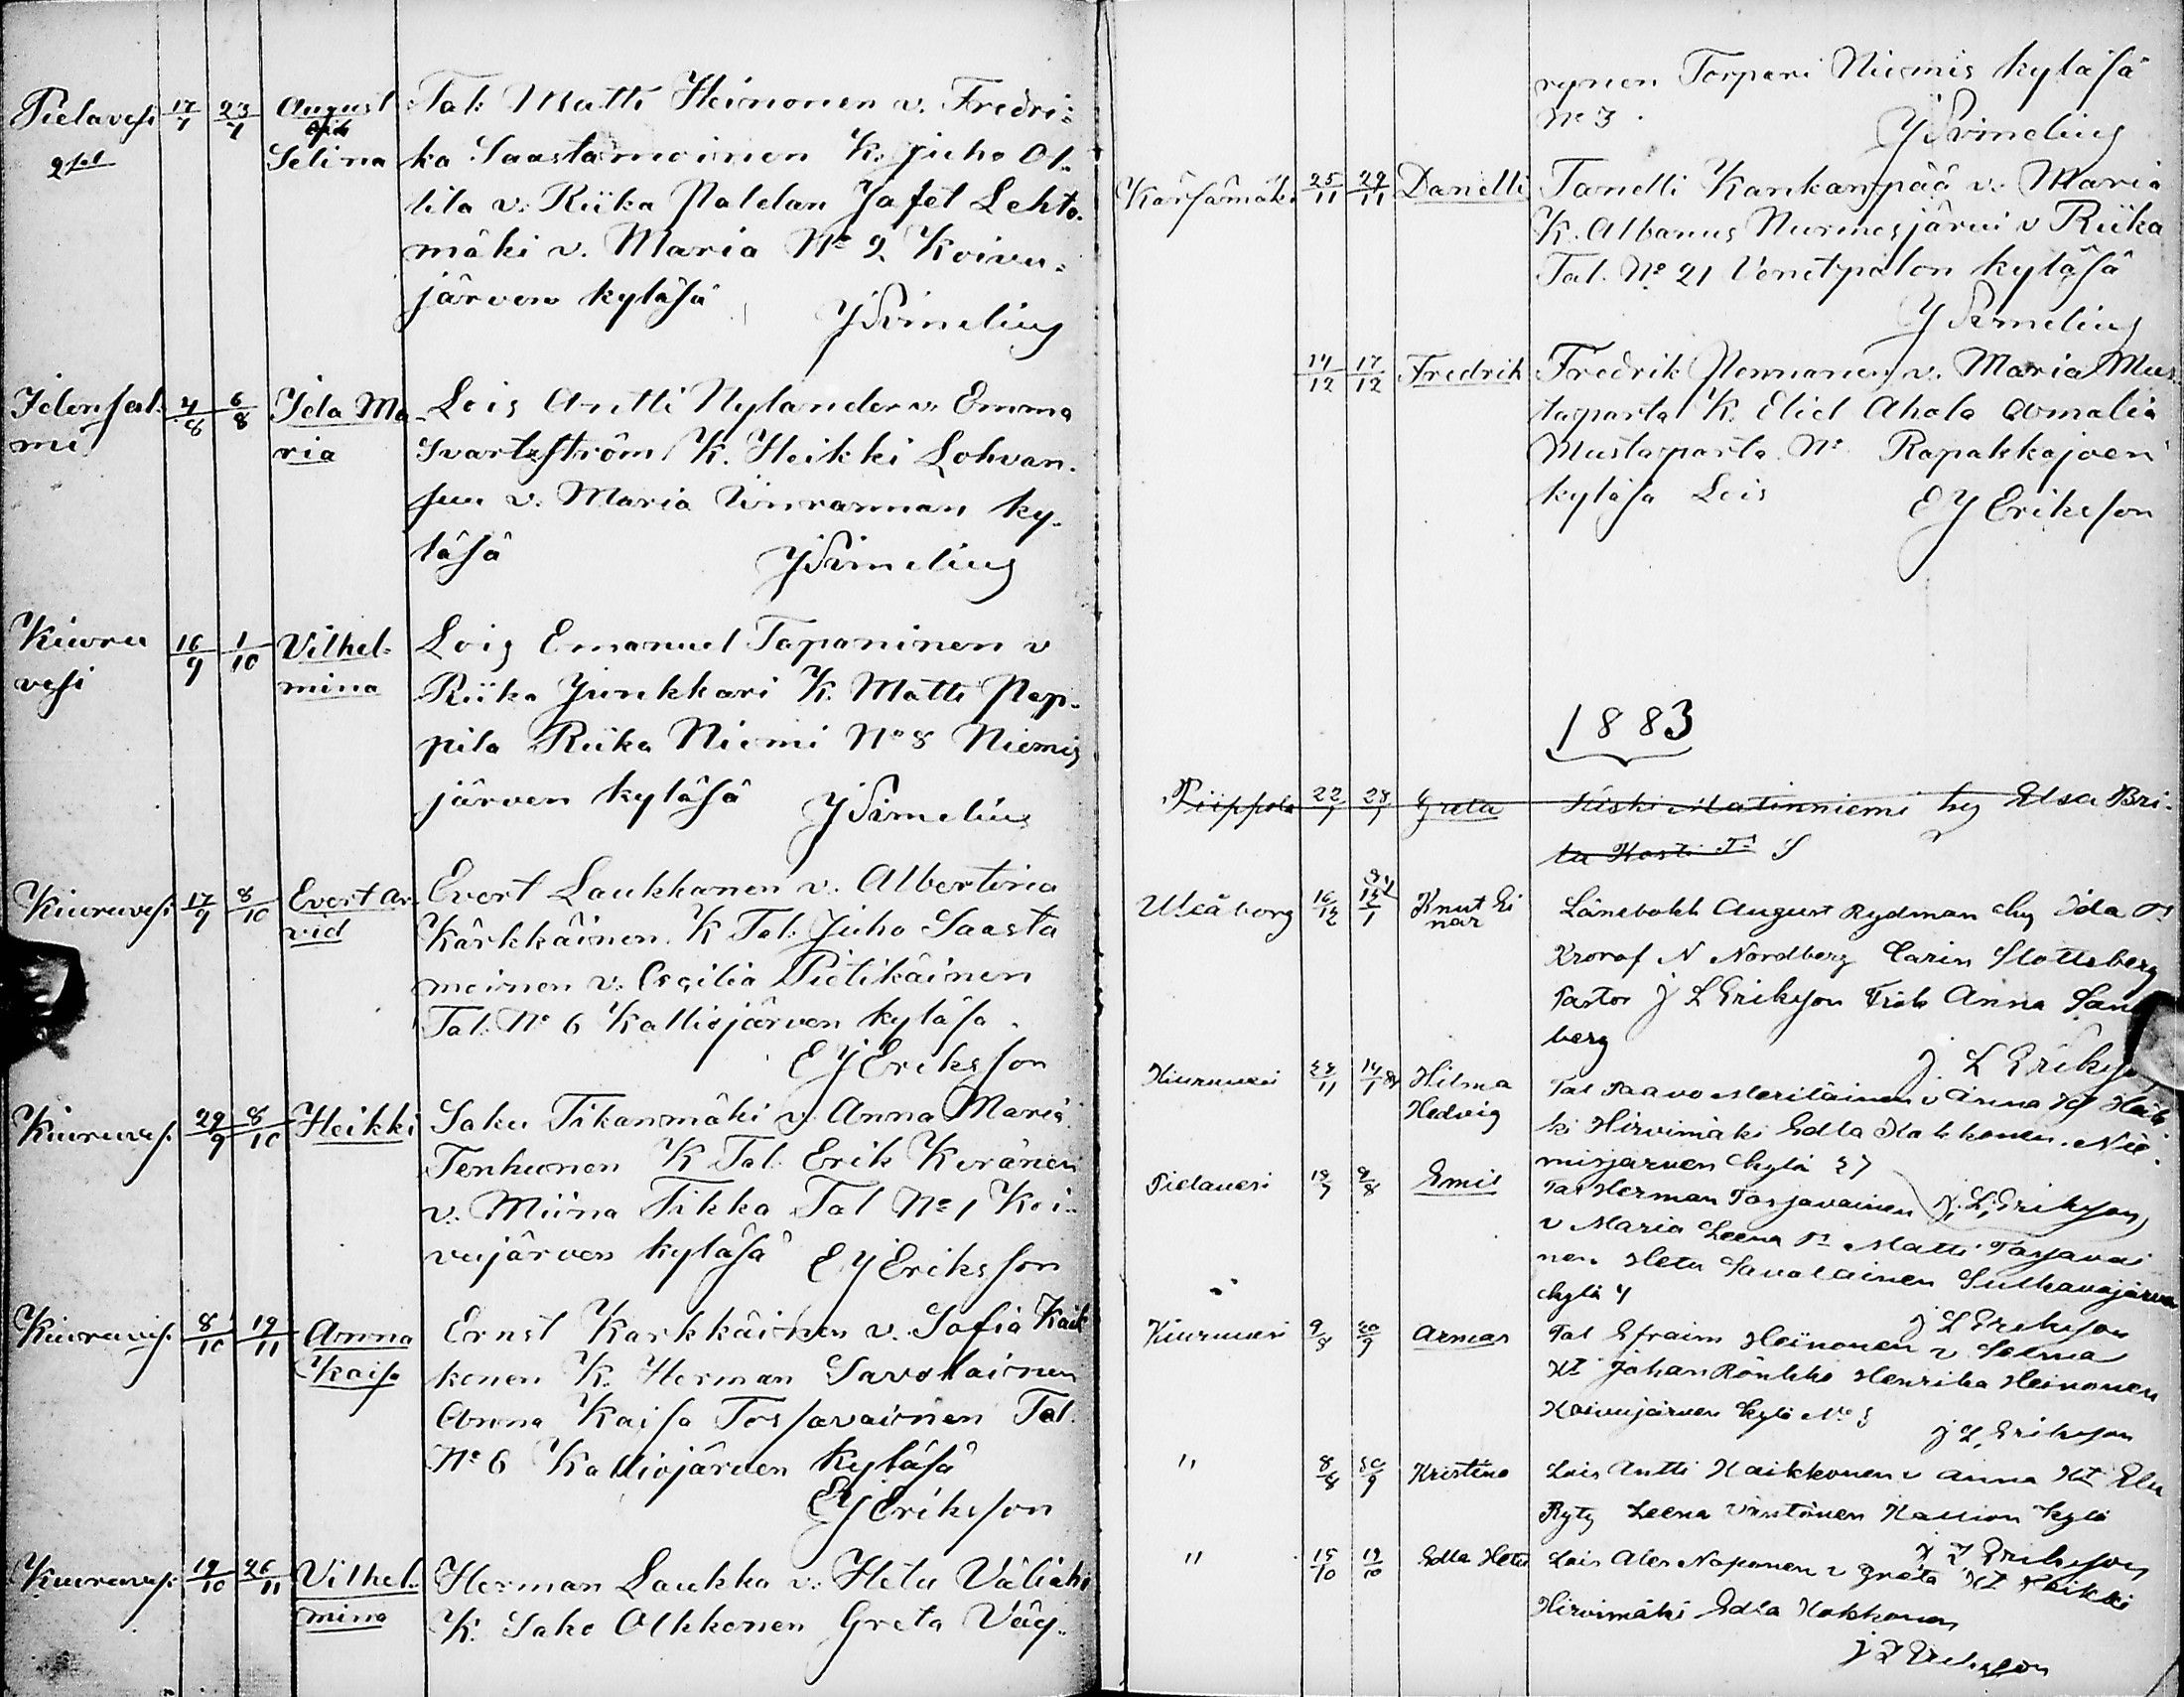 Pielavesi 17/7 23/7 August Tal: Matti Heinonen v. Fredri=
2set Selina ka Saastamoinen K. Juho Ol-
lila v. Riika Paldan Jafet Lehto-
mäki v. Maria No 2 Koivu=
järven kyläsä
J Simelius
Idensal- 4/8 6/8 Ida Ma- Lois Antti Nylander v. Emma
mi ria Svartsström K. Heikki Lohvan-
suu v. Maria ky-
läsä J Simelius
Kiuru 16/9 1/10 Vilhel- Lois Emanuel Tapaninen v
vesi mina Riika Junkkari K. Matti Pap-
pila Riika Niemi No 8 Niemis
järven kyläsä J Simelius
Kiuruvesi 17/9 8/10 Evert Ar- Evert Laukkanen v. Albertina
vid Kärkkäinen K Tal: Juho Saasta
moinen v. Cecilia Pietikäinen
Tal: No 6 Kalliojärven kyläsä
E J Eriksson
Kiuruves. 29/9 8/10 Heikki Saku Tikanmäki v. Anna Maria
Tenhunen K Tal: Erik Keränen
v. Miina Tikka Tal No 1 Koi-
vujärven kyläsä E J Eriksson
Kiuruves. 8/10 19/11 Anna Ernst Karkkäinen v. Sofia Kaik
Kaisa konen K. Herman Savolainen
Anna Kaisa Tossavainen Tal.
No 6 Kalliojärven kyläsä
E J Eriksson
Kiuruves. 19/10 26/11 Vilhel- Herman Laukka v. Hetu Väliaho
mina K. Sako Olkkonen Greta Väy-
rynen Torpari Niemis kyläsä
No 3.
J Simelius
Kärsämäki 25/11 29/11 Danelli Tanelli Kankanpää v. Maria
K. Albanus Nurmesjärvi v Riika
Tal. No 21 Venetpalon kyläsä
J Simelius
14/12 17/12 Fredrik Fredrik Pennanen v. Maria Mus
taparta K. Elid Ahola Amalia
Mustaparta No Rapakkojoen
kyläsä Lois E J Eriksson
1883
Piippola 22/1 28/1 Greta Matinniemi hy Elsa Bri-
ta
Uleåborg 16/12 Knut Ei Länebokh August Rydman Chy Ida
nar Kronof N Nordberg Carin Slotteberg
Pastor J L Eriksson Frök Anna San
berg
J. L Erikss
Kiuruvesi 14/1 Hilma Tal Paavo Meriläinen v Anna Heik
Hedvig ki Hirvimäki Edla Kokkonen. Nie-
misjärven kylä 27
J. L. Eriksson
Pielavesi Emil Tal Herman Tossavainen
v Maria Leena Matti Tossavai
nen Hetu Savolainen Sulkavajärven
" kylä 4
J L Eriksson
Kiuruvesi 9/8 20/9 Armas Tal Efraim Heinonen v Selma
Johan Rönkkö Henrika Heinonen
Koivujärven kylä No 5
J L, Eriksson
" 8/8 30/9 Kristina Lois Antti Kaikkonen v Anna
Ryty Leena Kallion kylä
J L Eriksson
" 15/10 19/10 Edla Hetu Lois Alex Naponen v Greta Heikki
Hirvimäki Edla Kokkonen
J L Eriksson